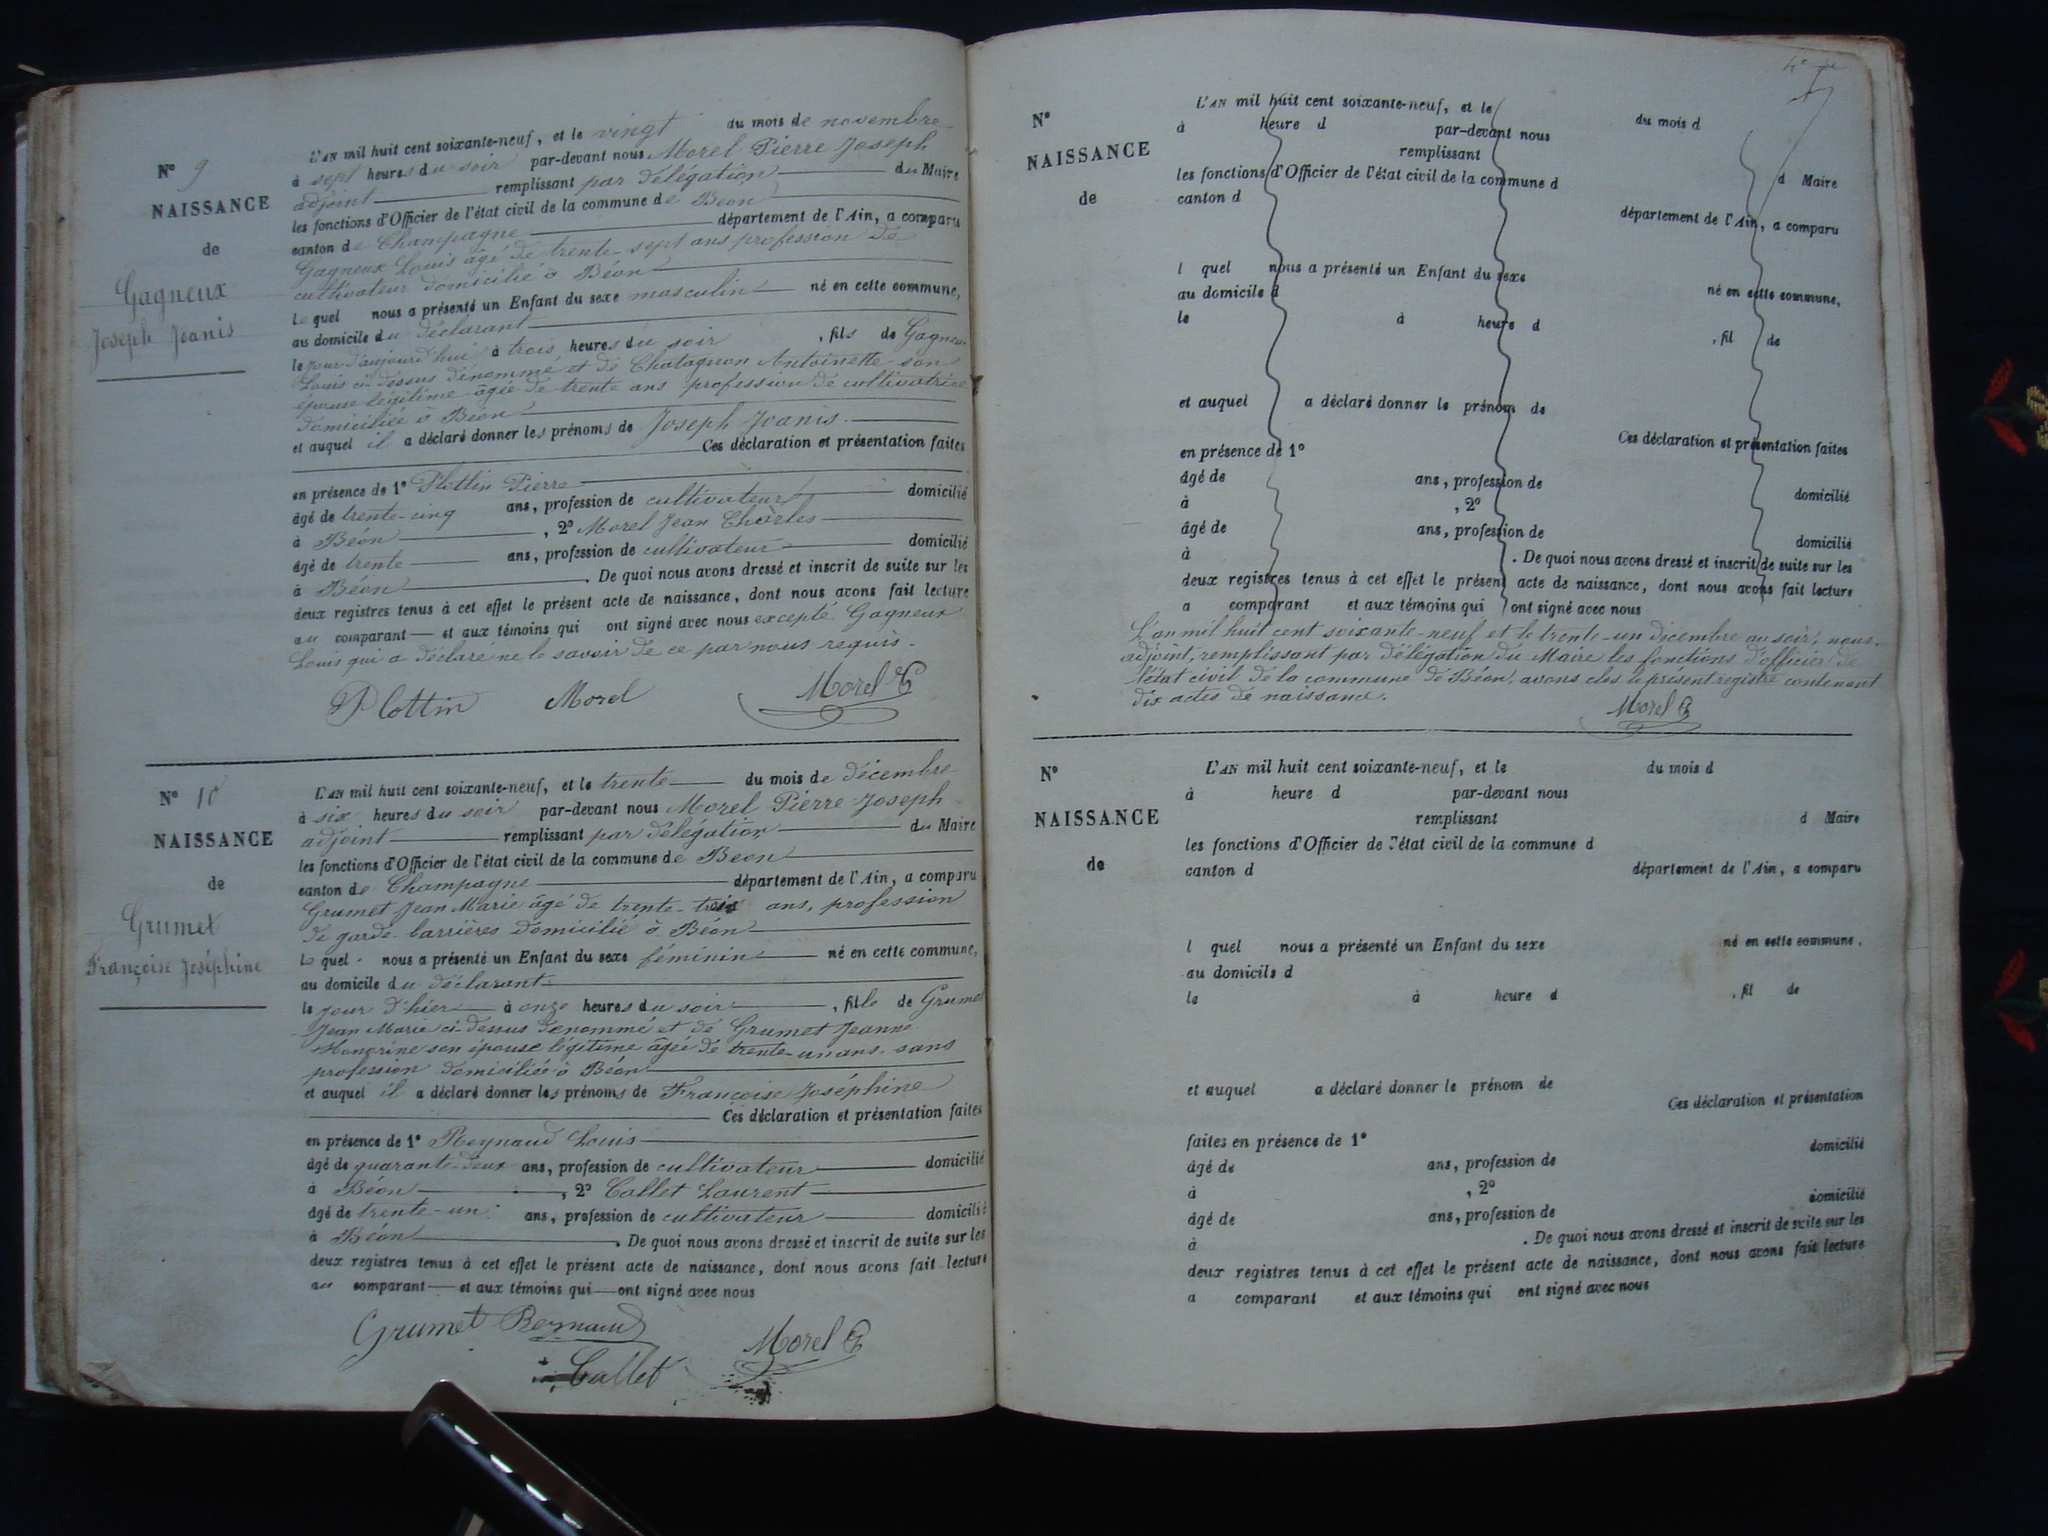 N° 9
NAISSANCE
de
Gagneux
Joseph Joanis
L'AN mil huit cent soixante-neuf, et le vingt du mois de novembre
à sept heures du soir par-devant nous Morel Pierre Joseph
adjoint remplissant par délégation du Maire
les fonctions d'Officier de l'état civil de la commune de Béon
canton de Champagne département de l'Ain, a comparu
Gagneux Louis âgé de trente-sept ans profession de
cultivateur domicilié à Béon
lequel nous a présenté un Enfant du sexe masculin né en cette commune,
au domicile du déclarant
le jour d'aujourd'hui à trois heures du soir, fils de Gagneux
Louis ci-dessus dénommé et de Chatagnon Antoinette son
épouse légitime âgée de trente ans profession de cultivatrice
domiciliée à Béon
et auquel il a déclaré donner les prénoms de Joseph Joanis.
Ces déclaration et présentation faites
en présence de 1° Plottin Pierre
âgé de trente-cinq ans, profession de cultivateur domicilié
à Béon, 2° Morel Jean Charles
âgé de trente ans, profession de cultivateur domicilié
à Béon. De quoi nous avons dressé et inscrit de suite sur les
deux registres tenus à cet effet le présent acte de naissance, dont nous avons fait lecture
au comparant et aux témoins qui ont signé avec nous excepté Gagneux
Louis qui a déclaré ne le savoir de ce par nous requis.
Plottin Morel Morel
N° 10
NAISSANCE
de
Grumet
Françoise Joséphine
L'AN mil huit cent soixante-neuf, et le trente du mois de décembre
à six heures du soir par-devant nous Morel Pierre Joseph
adjoint remplissant par délégation du Maire
les fonctions d'Officier de l'état civil de la commune de Béon
canton de Champagne département de l'Ain, a comparu
Grumet Jean Marie âgé de trente-trois ans, profession
de garde-barrières domicilié à Béon
lequel nous a présenté un Enfant du sexe féminin né en cette commune,
au domicile du déclarant
le jour d'hier à onze heures du soir, fille de Grumet
Jean Marie ci-dessus dénommé et de Grumet Jeanne
Honorine son épouse légitime âgée de trente-un ans sans
profession domiciliée à Béon
et auquel il a déclaré donner les prénoms de Françoise Joséphine
Ces déclaration et présentation faites
en présence de 1° Reynaud Louis
âgé de quarante-deux ans, profession de cultivateur domicilié
à Béon, 2° Callet Laurent
âgé de trente-un ans, profession de cultivateur domicilié
à Béon. De quoi nous avons dressé et inscrit de suite sur les
deux registres tenus à cet effet le présent acte de naissance, dont nous avons fait lecture
au comparant et aux témoins qui ont signé avec nous
Grumet Reynaud Morel
Callet
N°
NAISSANCE
de
L'AN mil huit cent soixante-neuf, et le du mois d
à heure d par-devant nous
remplissant d Maire
les fonctions d'Officier de l'état civil de la commune d
canton d département de l'Ain, a comparu
l quel nous a présenté un Enfant du sexe né en cette commune,
au domicile d
le à heure d , fil de
et auquel a déclaré donner le prénom de
Ces déclaration et présentation faites
en présence de 1°
âgé de ans, profession de domicilié
à , 2°
âgé de ans, profession de domicilié
à . De quoi nous avons dressé et inscrit de suite sur les
deux registres tenus à cet effet le présent acte de naissance, dont nous avons fait lecture
a comparant et aux témoins qui ont signé avec nous
L'an mil huit cent soixante-neuf et le trente-un décembre au soir, nous
adjoint, remplissant par délégation du Maire les fonctions d'officier de
l'état civil de la commune de Béon, avons clos le présent registre contenant
dix actes de naissance.
Morel
N°
NAISSANCE
de
L'AN mil huit cent soixante-neuf, et le du mois d
à heure d par-devant nous
remplissant d Maire
les fonctions d'Officier de l'état civil de la commune d
canton d département de l'Ain, a comparu
l quel nous a présenté un Enfant du sexe né en cette commune,
au domicile d
le à heure d , fil de
et auquel a déclaré donner le prénom de
Ces déclaration et présentation
faites en présence de 1°
âgé de ans, profession de domicilié
à , 2°
âgé de ans, profession de domicilié
à . De quoi nous avons dressé et inscrit de suite sur les
deux registres tenus à cet effet le présent acte de naissance, dont nous avons fait lecture
a comparant et aux témoins qui ont signé avec nous